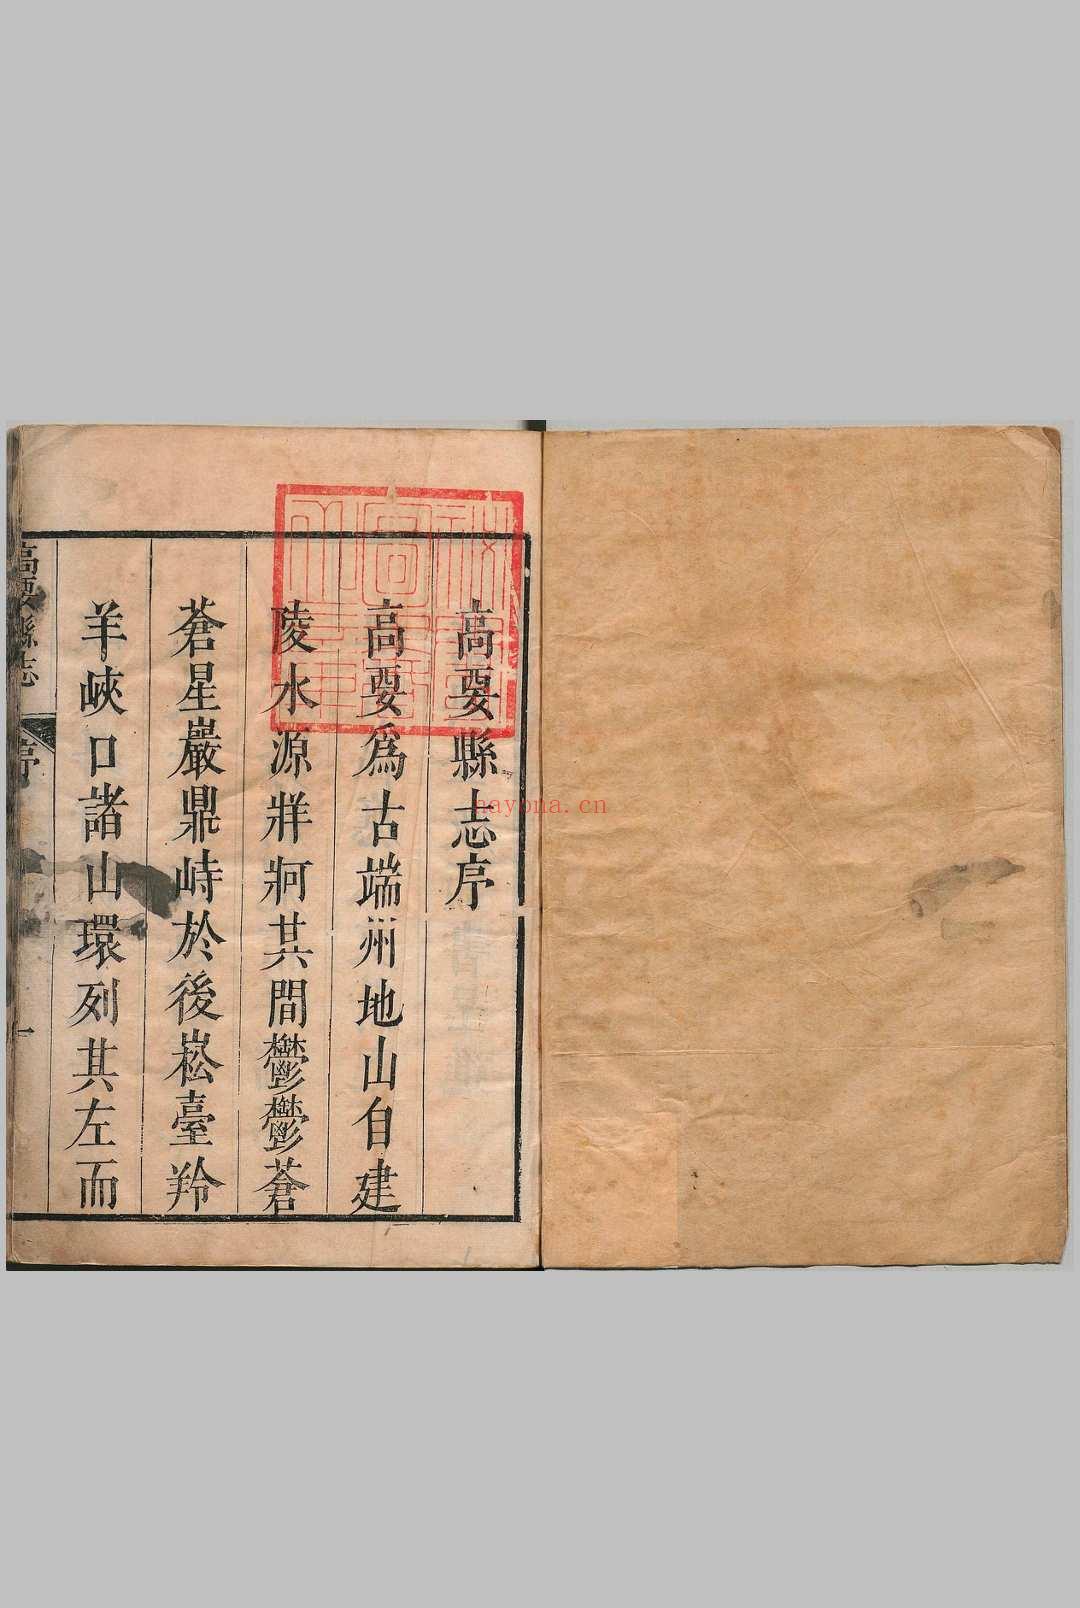 高要縣志序
高要爲古端州地山自建
陵水源牂牁其間鬱鬱蒼
蒼星巖鼎峙於後崧臺羚
羊峽口諸山環列其左而
高要縣志
序
一
nayona.cn